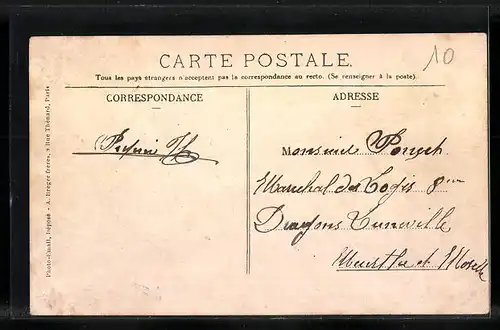 CARTE POSTALE.
10
Tous les pays étrangers n'acceptent pas la correspondance au recto. (Se renseigner à la poste).
CORRESPONDANCE
ADRESSE
Monsieur
Marechal des Logis 8me
Dragons Luneville
Meurthe et Moselle
Photo-d'mail, Déposé - A. Breger frères, 9 Rue Thénard, Paris